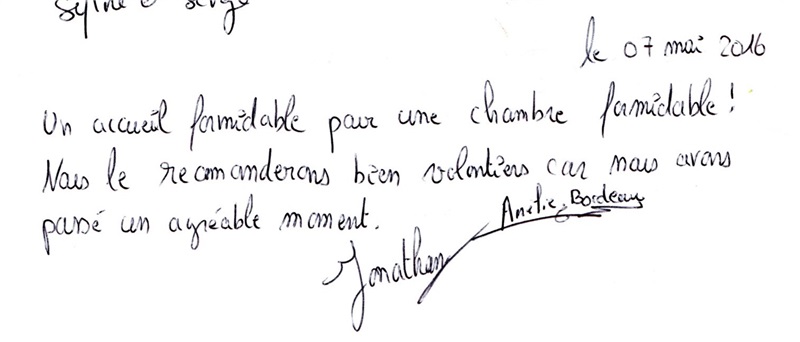 Sylvie & Serge
le 07 mai 2016
Un accueil formidable pour une chambre formidable !
Nous le recomanderons bien volontiers car nous avons
passé un agréable moment.
Amélie, Bordeaux
Jonathan